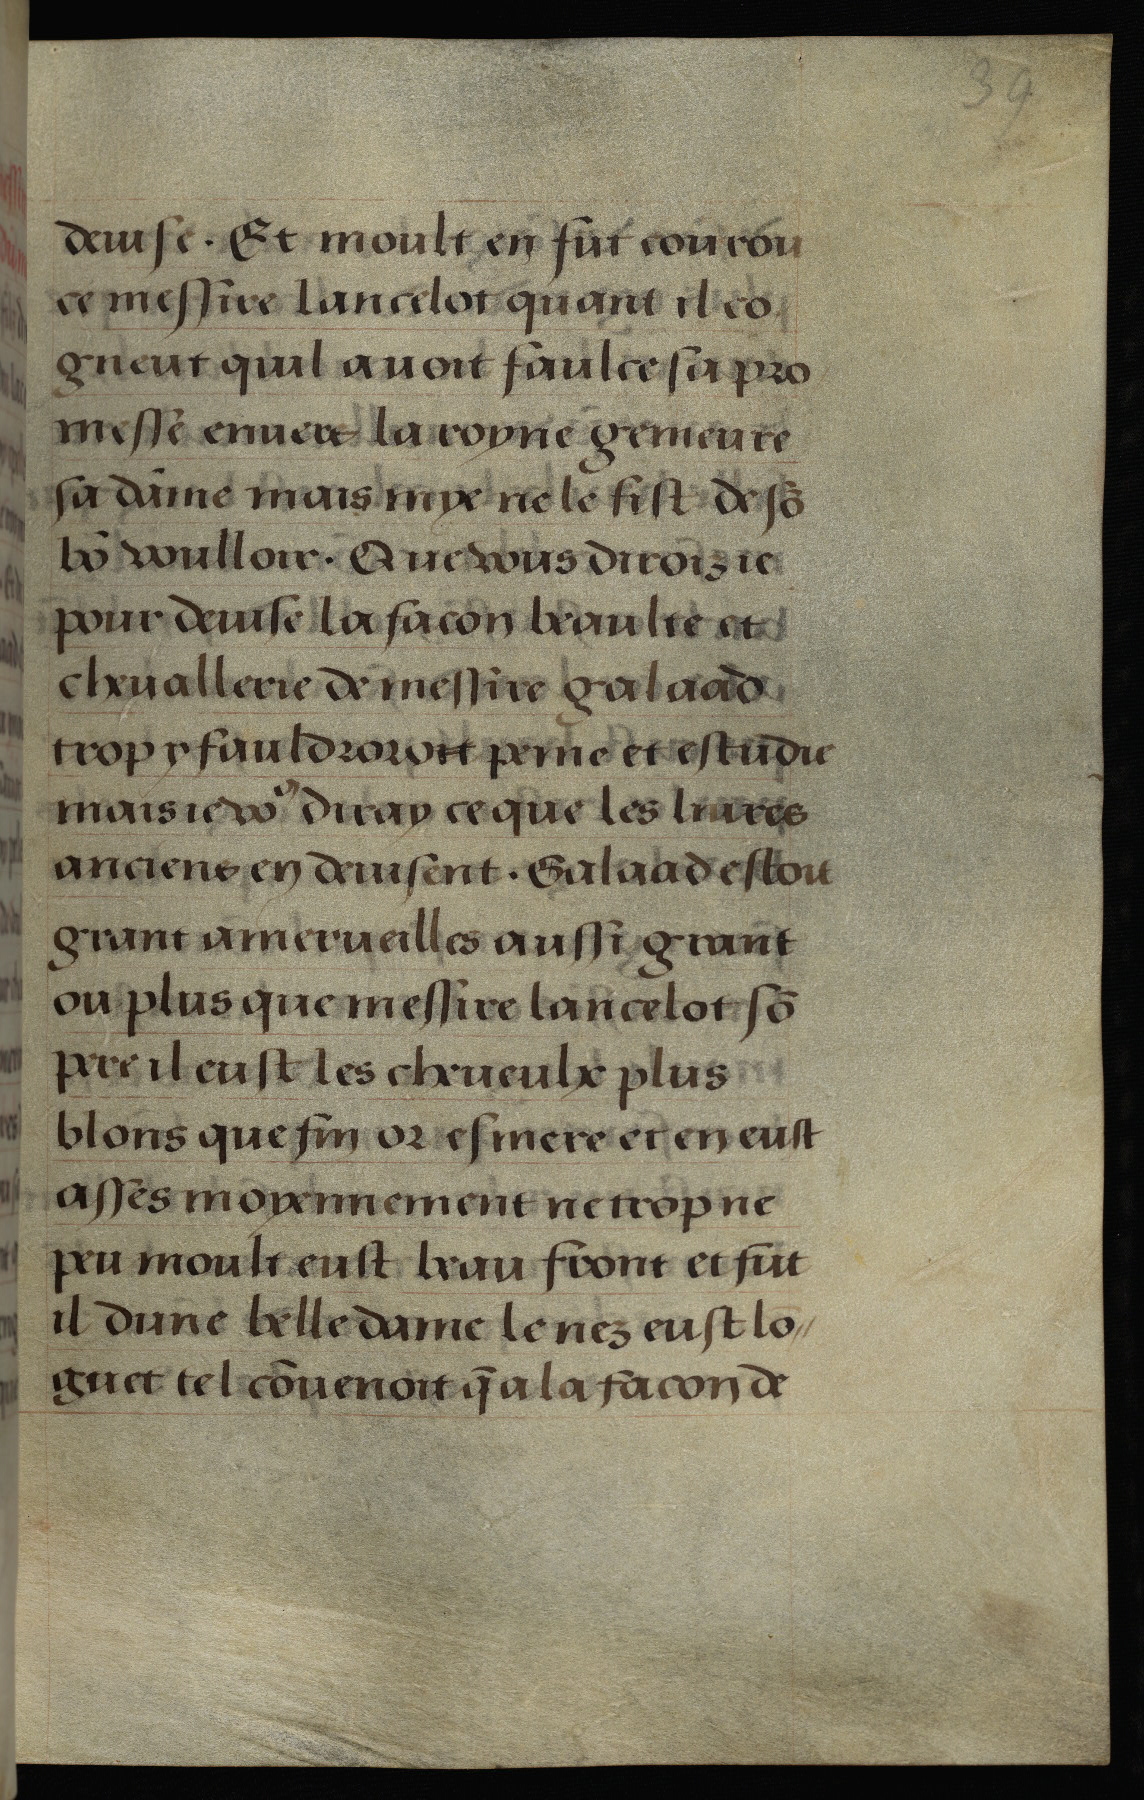 39
deuise. Et moult en fut courou
ce messire lancelot quant il co
gneut quil auoit faulce sa pro
messe enuers la royne genieure
sa dame mais mye ne le fist de sō
bō voulloir. Que vous diroiz ie
pour deuise la facon beaulte et
cheuallerie de messire galaad
trop y fauldroroit peine et estudie
mais ie voꝰ diray ce que les liures
anciens en deuisent. Galaad estoit
grant a merueilles aussi grant
ou plus que messire lancelot sō
pere il eust les cheueulx plus
blons que fin or esmere et en eust
asses moyennement ne trop ne
peu moult eust beau front et fut
il dune belle dame le nez eust lō//
guet tel cōuenoit q̄ a la facon de